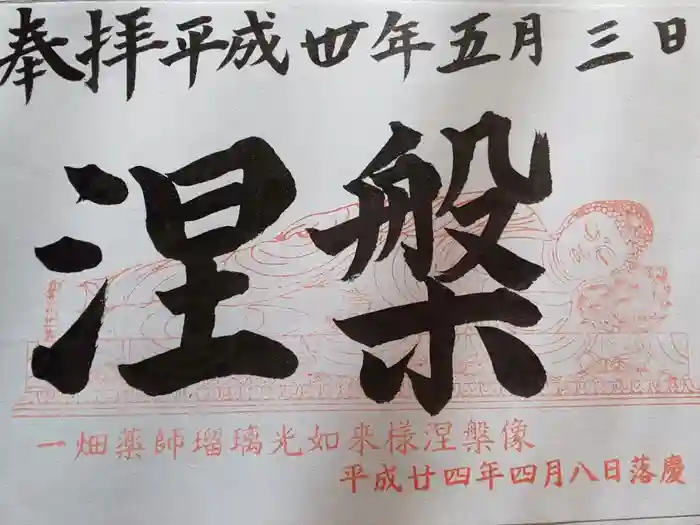 奉拝平成卌年五月三日
涅槃
一畑薬師瑠璃光如来様涅槃像
平成廿四年四月八日落慶